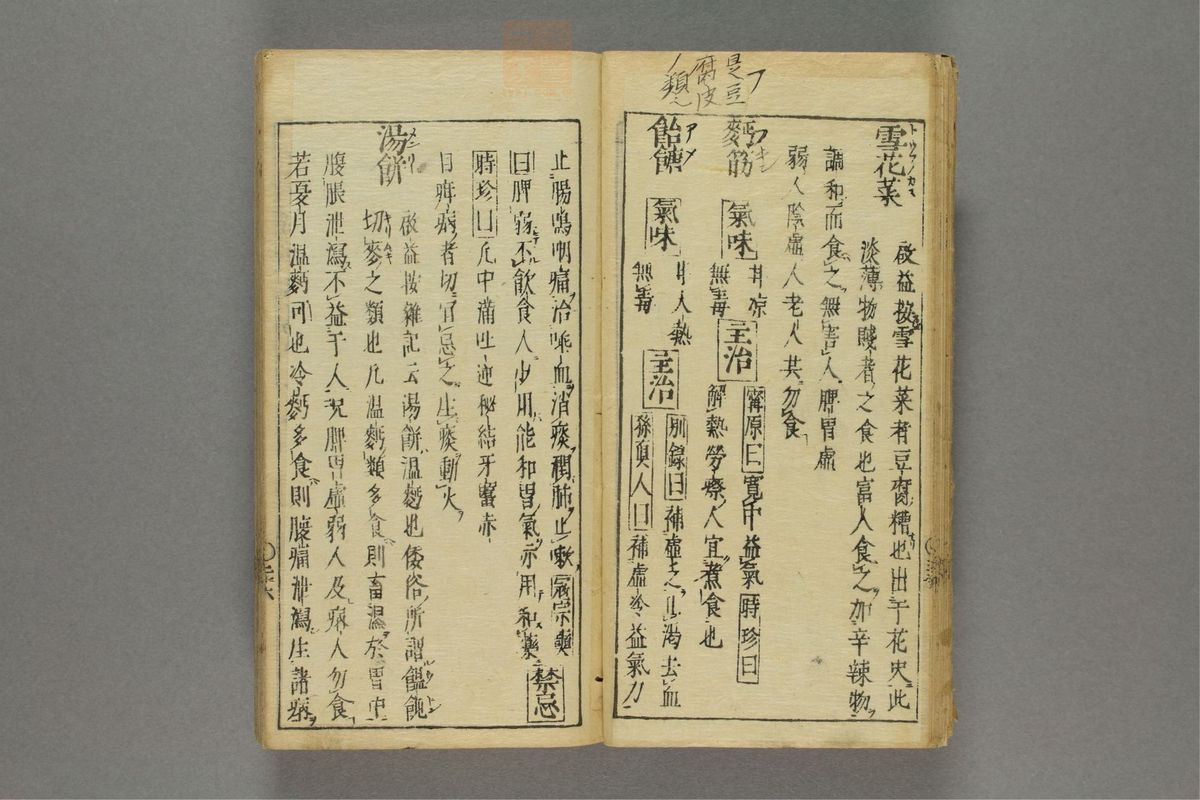 是豆
腐皮
ノ類也
雪花菜
啟益按雪花菜者豆腐糟也出于花史此
淡薄物賤者之食也富人食之加辛辣物
調和而食之無害人脾胃虛
弱人陰虛人老人共勿食
麪筋 氣味 甘凉無毒 主治 寗原曰寬中益氣時珍曰
解熱勞瘵人宜煮食也
飴餹 氣味 甘大熱無毒 主治 別錄曰補虛乏止渴去血
孫真人曰補虛冷益氣力
止腸鳴咽痛治唾血消痰潤肺止嗽寇宗奭
曰脾弱不飲食人少用能和胃氣亦用和藥 禁忌
時珍曰凡中滿吐逆秘結牙䘌赤
目疳病者切宜忌之生痰動火
湯餅
啟益按雜記云湯餅溫麪也倭俗所謂饂飩
切麥之類也凡溫麪類多食則畜濕於胃中
腹脹泄瀉不益于人况脾胃虛弱人及病人勿食
若夏月溫麪可也冷麪多食則腹痛泄瀉生諸病